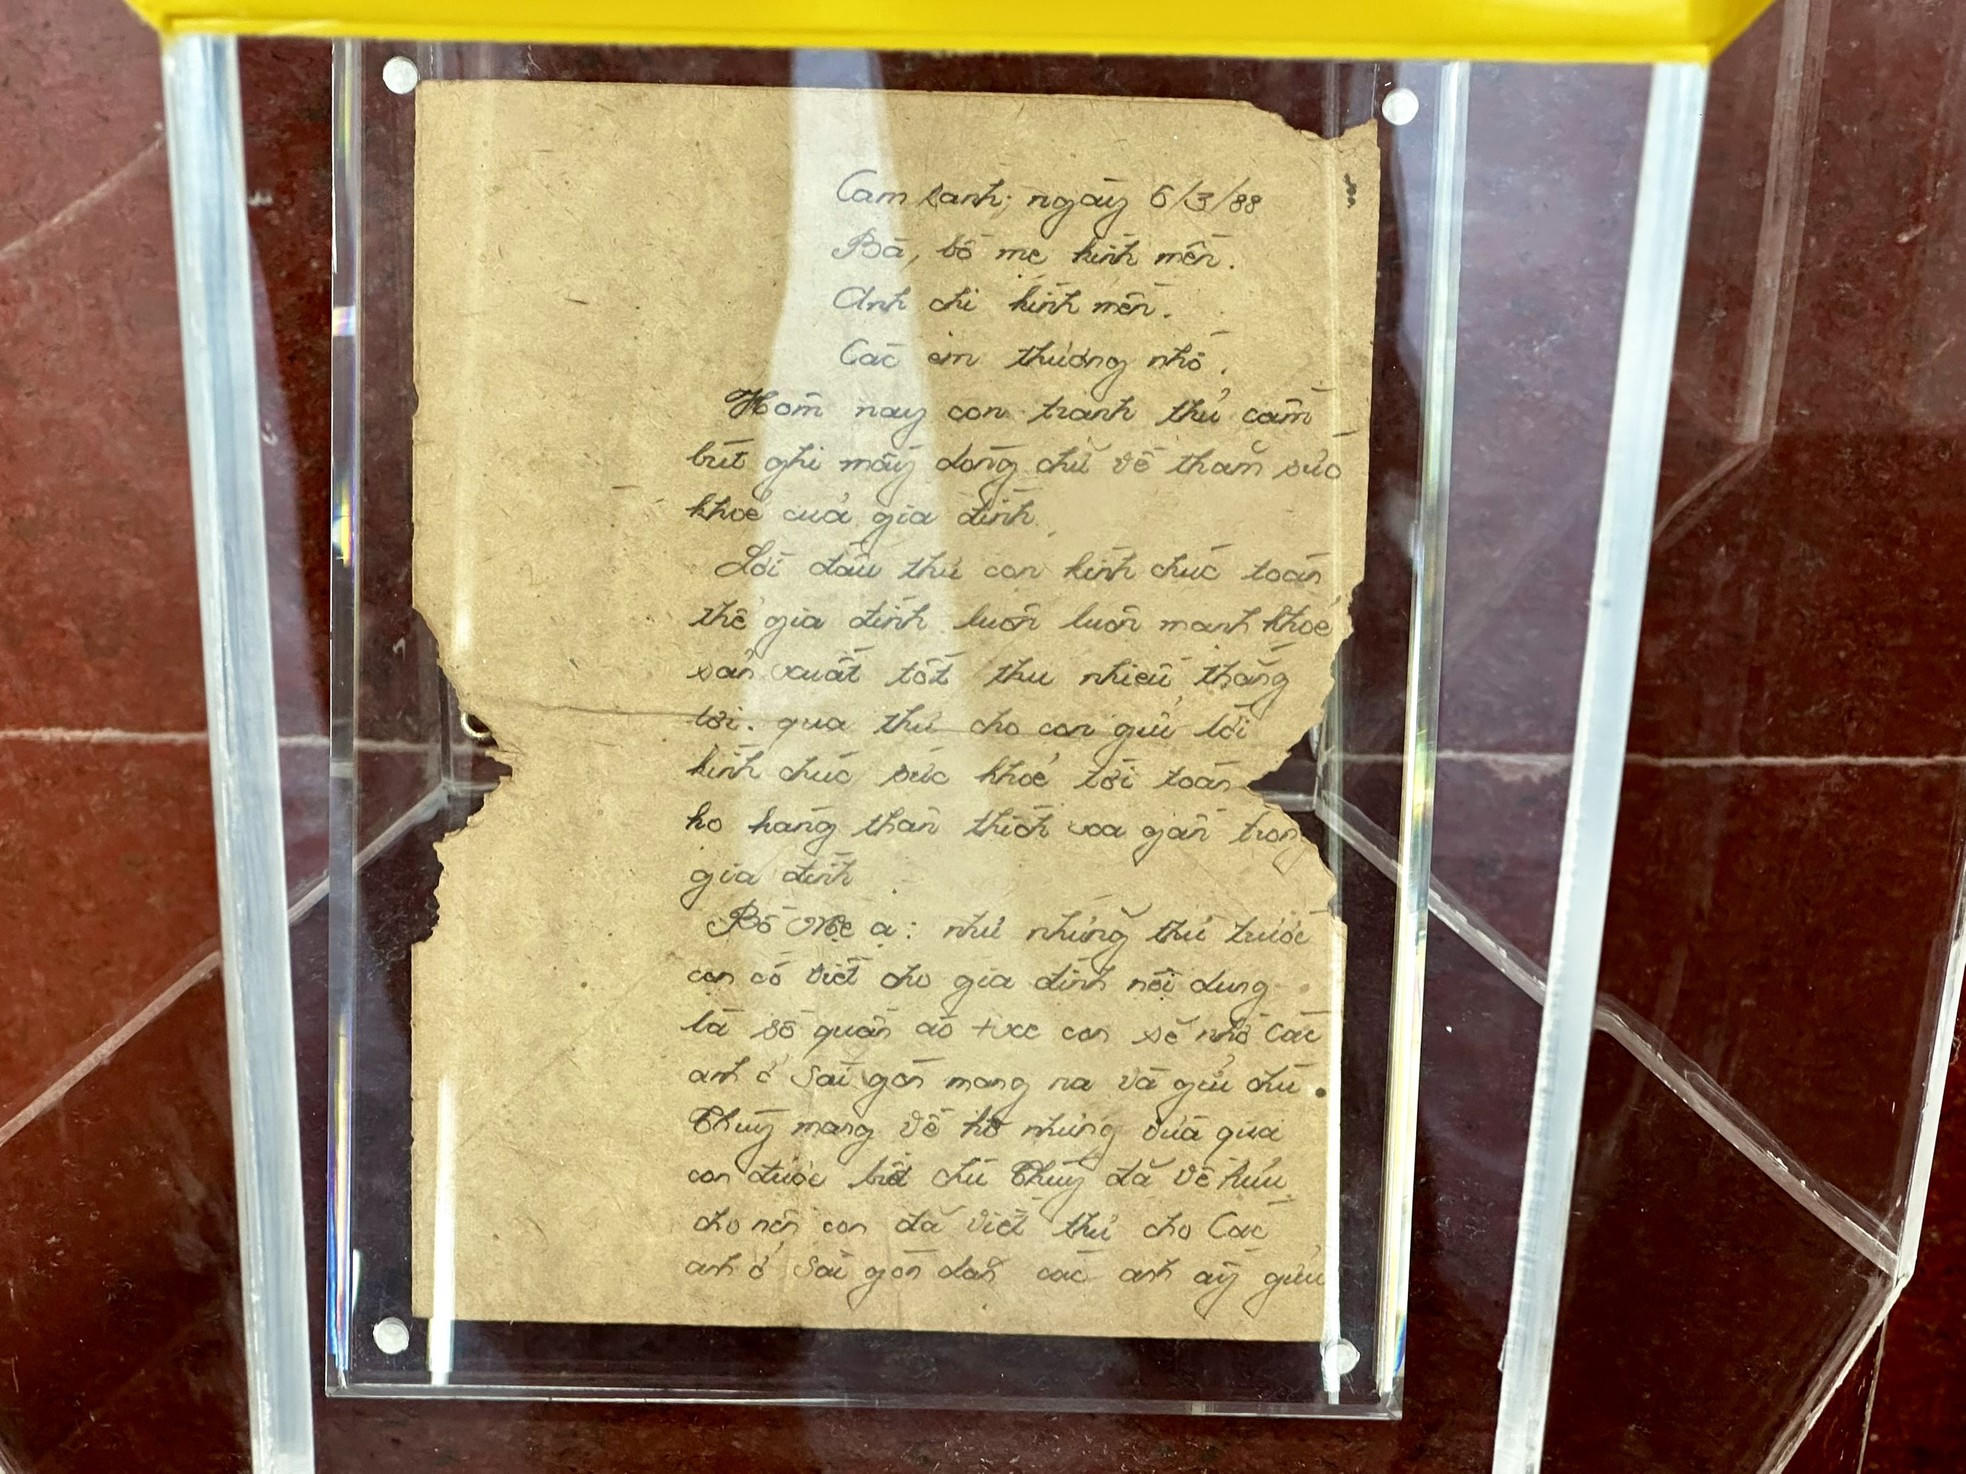 Cam Ranh, ngày 6/3/88
Bà, bố mẹ kính mến.
Anh chị kính mến.
Các em thương nhớ.
Hôm nay con tranh thủ cầm
bút ghi mấy dòng chữ về thăm sức
khoẻ của gia đình
Lời đầu thư con kính chúc toàn
thể gia đình luôn luôn mạnh khoẻ
sản xuất tốt thu nhiều thắng
lợi. qua thư cho con gửi lời
kính chúc sức khoẻ tới toàn
họ hàng thân thích xa gần trong
gia đình
Bố Mẹ ạ: như những thư trước
con có viết cho gia đình nội dung
là số quần áo con sẽ nhờ Các
anh ở Sài gòn mang ra và gửi chú
Thuỷ mang về hộ nhưng vừa qua
con được biết chú Thuỷ đã về hưu
cho nên con đã viết thư cho Các
anh ở Sài gòn dặn các anh ấy gửi